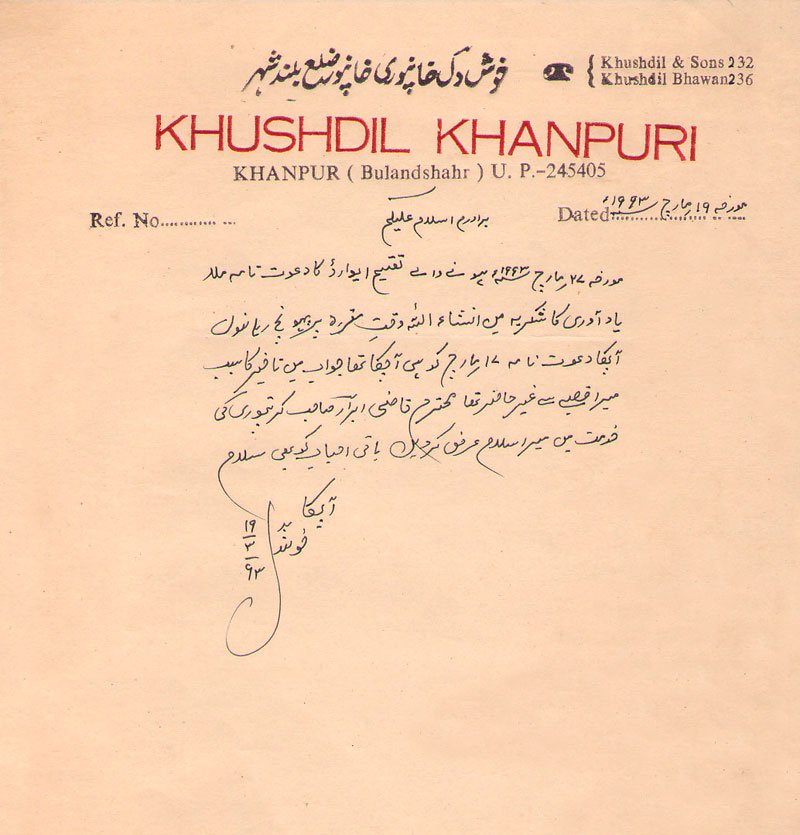 خوش دل خانپوری خانپور ضلع بلند شہر
Khushdil & Sons 232
Khushdil Bhawan 236
KHUSHDIL KHANPURI
KHANPUR ( Bulandshahr ) U. P.-245405
Ref. No...............
Dated مورخہ ۱۹ مارچ ۱۹۹۳ء
برادرم اسلام علیکم
مورخہ ۲۷ مارچ ۱۹۹۳ء ہونے والے تقسیم ایوارڈ کا دعوت نامہ ملا
یاد آوری کا شکریہ میں انشاء اللہ وقتِ مقررہ پر پہونچ رہا ہوں
آپکا دعوت نامہ ۱۷ مارچ کو ہی آ چکا تھا جواب میں تاخیر کا سبب
میرا قصبے سے غیر حاضر تھا محترم قاضی ابرار صاحب کرتپوری کی
خدمت میں میرا سلام عرض کردیں باقی احباب کو بھی سلام
آپکا
خوشدل
۱۹
۳
۹۳